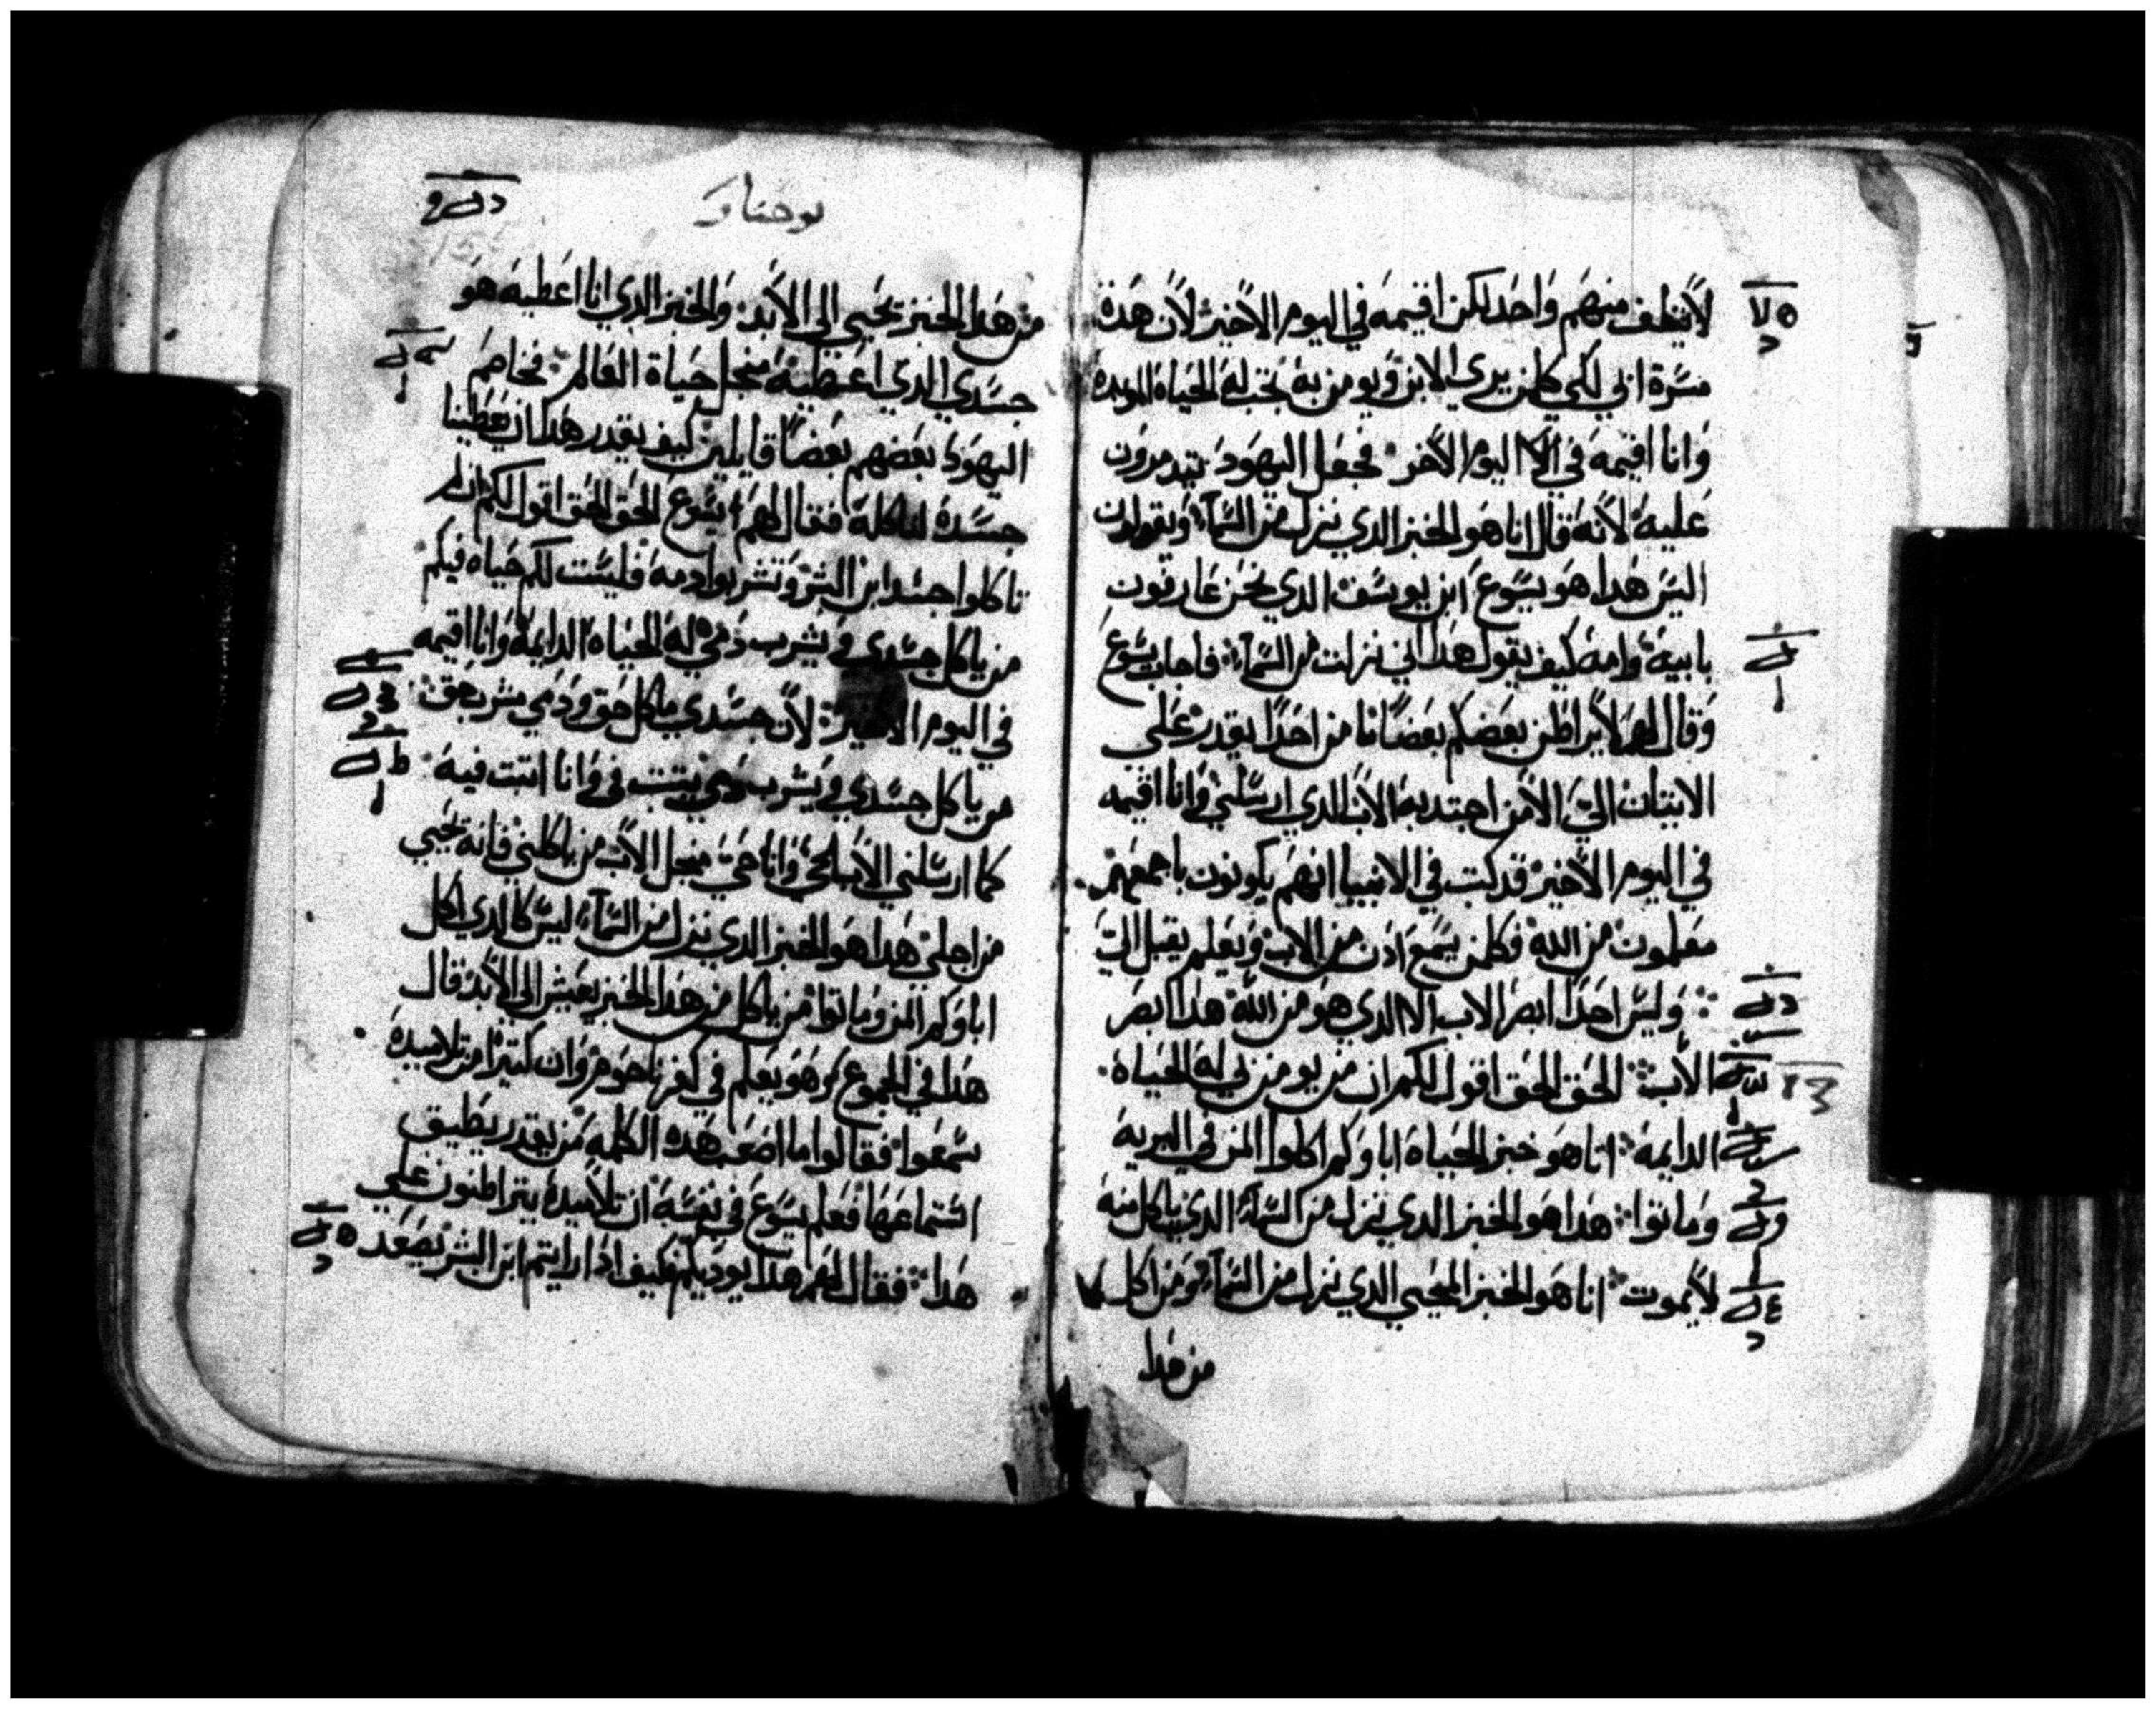 لاينظف منهم واحد لكن اقيمه في اليوم الاخير لان هدة
مسرة ابي لكي كلمن يري الابن ويومن به تجب له الحياة الموبدة
وانا اقيمه في اليوم الاخر فجعل اليهود يتدمرون
عليه لانه قال انا هو الخبز الدي نزل من السمآ ويقولون
اليس هدا هو يسوع ابن يوسف الدي نحن عارفون
بابيه وامه كيف يقول هدا اني نزلت من السمآ فاجاب يسوع
وقال لهم لا يراطن بعضكم بعضا ما من احدا يقدر علي
الاتيان الي الا من اجتدبه الاب الدي ارسلني وانا اقيمه
في اليوم الاخير قد كتب في الانبيا انهم يكونون باجمعهم
معلمون من الله فكلمن يسمع ادن من الاب ويعلم يقبل الي
وليس احدا ابصر الاب الا الدي هو من الله هدا ابصر
الاب الحق الحق اقول لكم ان من يومن بي له الحياة
الدايمة انا هو خبز الحياة اباوكم اكلوا المن في البرية
وماتوا هدا هو الخبز الدي نزل من السمآ الدي ياكل منه
لايموت انا هو الخبز المحيي الدي نزل من السمآ ومن اكل
من هدا
يوحنا
من هدا الخبز يحيي الي الابد والخبز الدي انا اعطيه هو
جسدي الدي اعطيه منجل حياة العالم فخاصم
اليهود بعضهم بعضا قايلين كيف يقدر هدا ان يعطينا
جسده لناكله فقال لهم يسوع الحق الحق اقول لكم ان لم
تاكلوا جسد ابن البشر وتشربوا دمه فليست لكم حياه فيكم
من ياكل جسدي ويشرب دمي له الحياه الدايمة وانا اقيمه
في اليوم الاخير لان جسدي ماكل حق ودمي مشرب حق
من ياكل جسدي ويشرب دمي يتبت في وانا اتبت فيه
كما ارسلني الاب الحي وانا حي منجل الاب من ياكلني فانه يحيي
من اجلي هدا هو الخبز الدي نزل من السمآ ليس كالدي اكل
اباوكم المن وماتوا من ياكل من هدا الخبز يعيش الي الابد قال
هدا في المجموع وهو يعلم في كفرناحوم وان كتيرا من تلاميده
سمعوا فقالوا ما اصعب هده الكلمه من يقدر يطيق
استماعها فعلم يسوع في نفسه ان تلاميده يتراطنون علي
هدا فقال لهم هدا يوديكم فكيف ادا رايتم ابن البشر يصعد